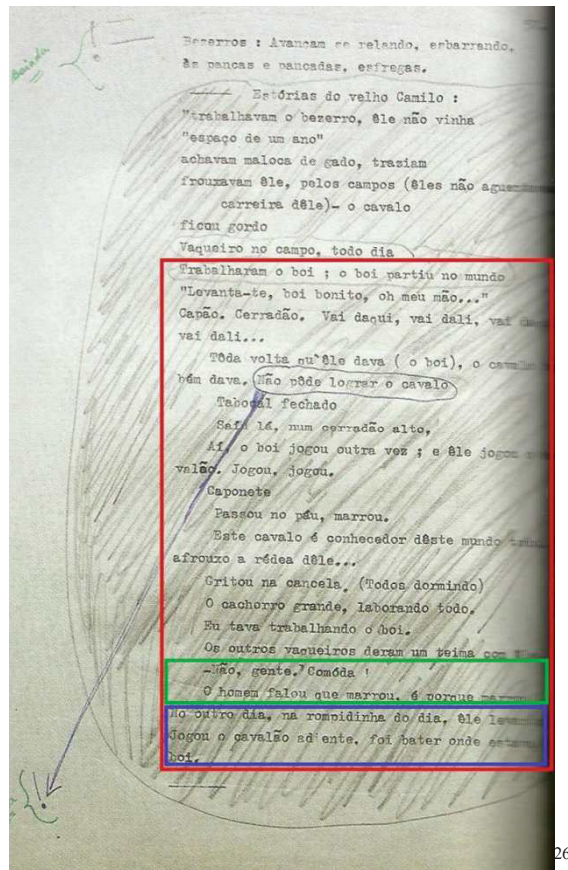 boiada
Bezerros : Avançam se relando, esbarrando,
às pancas e pancadas, esfregas.
Estórias do velho Camilo :
"trabalhavam o bezerro, êle não vinha
"espaço de um ano"
achavam maloca de gado, traziam
frouxavam êle, pelos campos (êles não
carreira dêle)- o cavalo
ficou gordo
Vaqueiro no campo, todo dia
Trabalharam o boi ; o boi partiu no mundo
"Levanta-te, boi bonito, oh meu mão..."
Capão. Cerradão. Vai daqui, vai dali, vai
vai dali...
Tôda volta qu'êle dava ( o boi), o
bém dava. Não pôde lograr o cavalo
Tabocal fechado
Saí lá, num cerradão alto,
Aí, o boi jogou outra vez ; e êle
valão. Jogou, jogou.
Caponete
Passou no páu, marrou.
Este cavalo é conhecedor dêste mundo
afrouxo a rédea dêle...
Gritou na cancela. (Todos dormindo)
O cachorro grande, laborando todo.
Eu tava trabalhando o boi.
Os outros vaqueiros deram um teima com
-Não, gente. Comóda !
O homem falou que marrou, é porque
No outro dia, na rompidinha do dia, êle
Jogou o cavalão ad'ente, foi bater onde
boi.
26